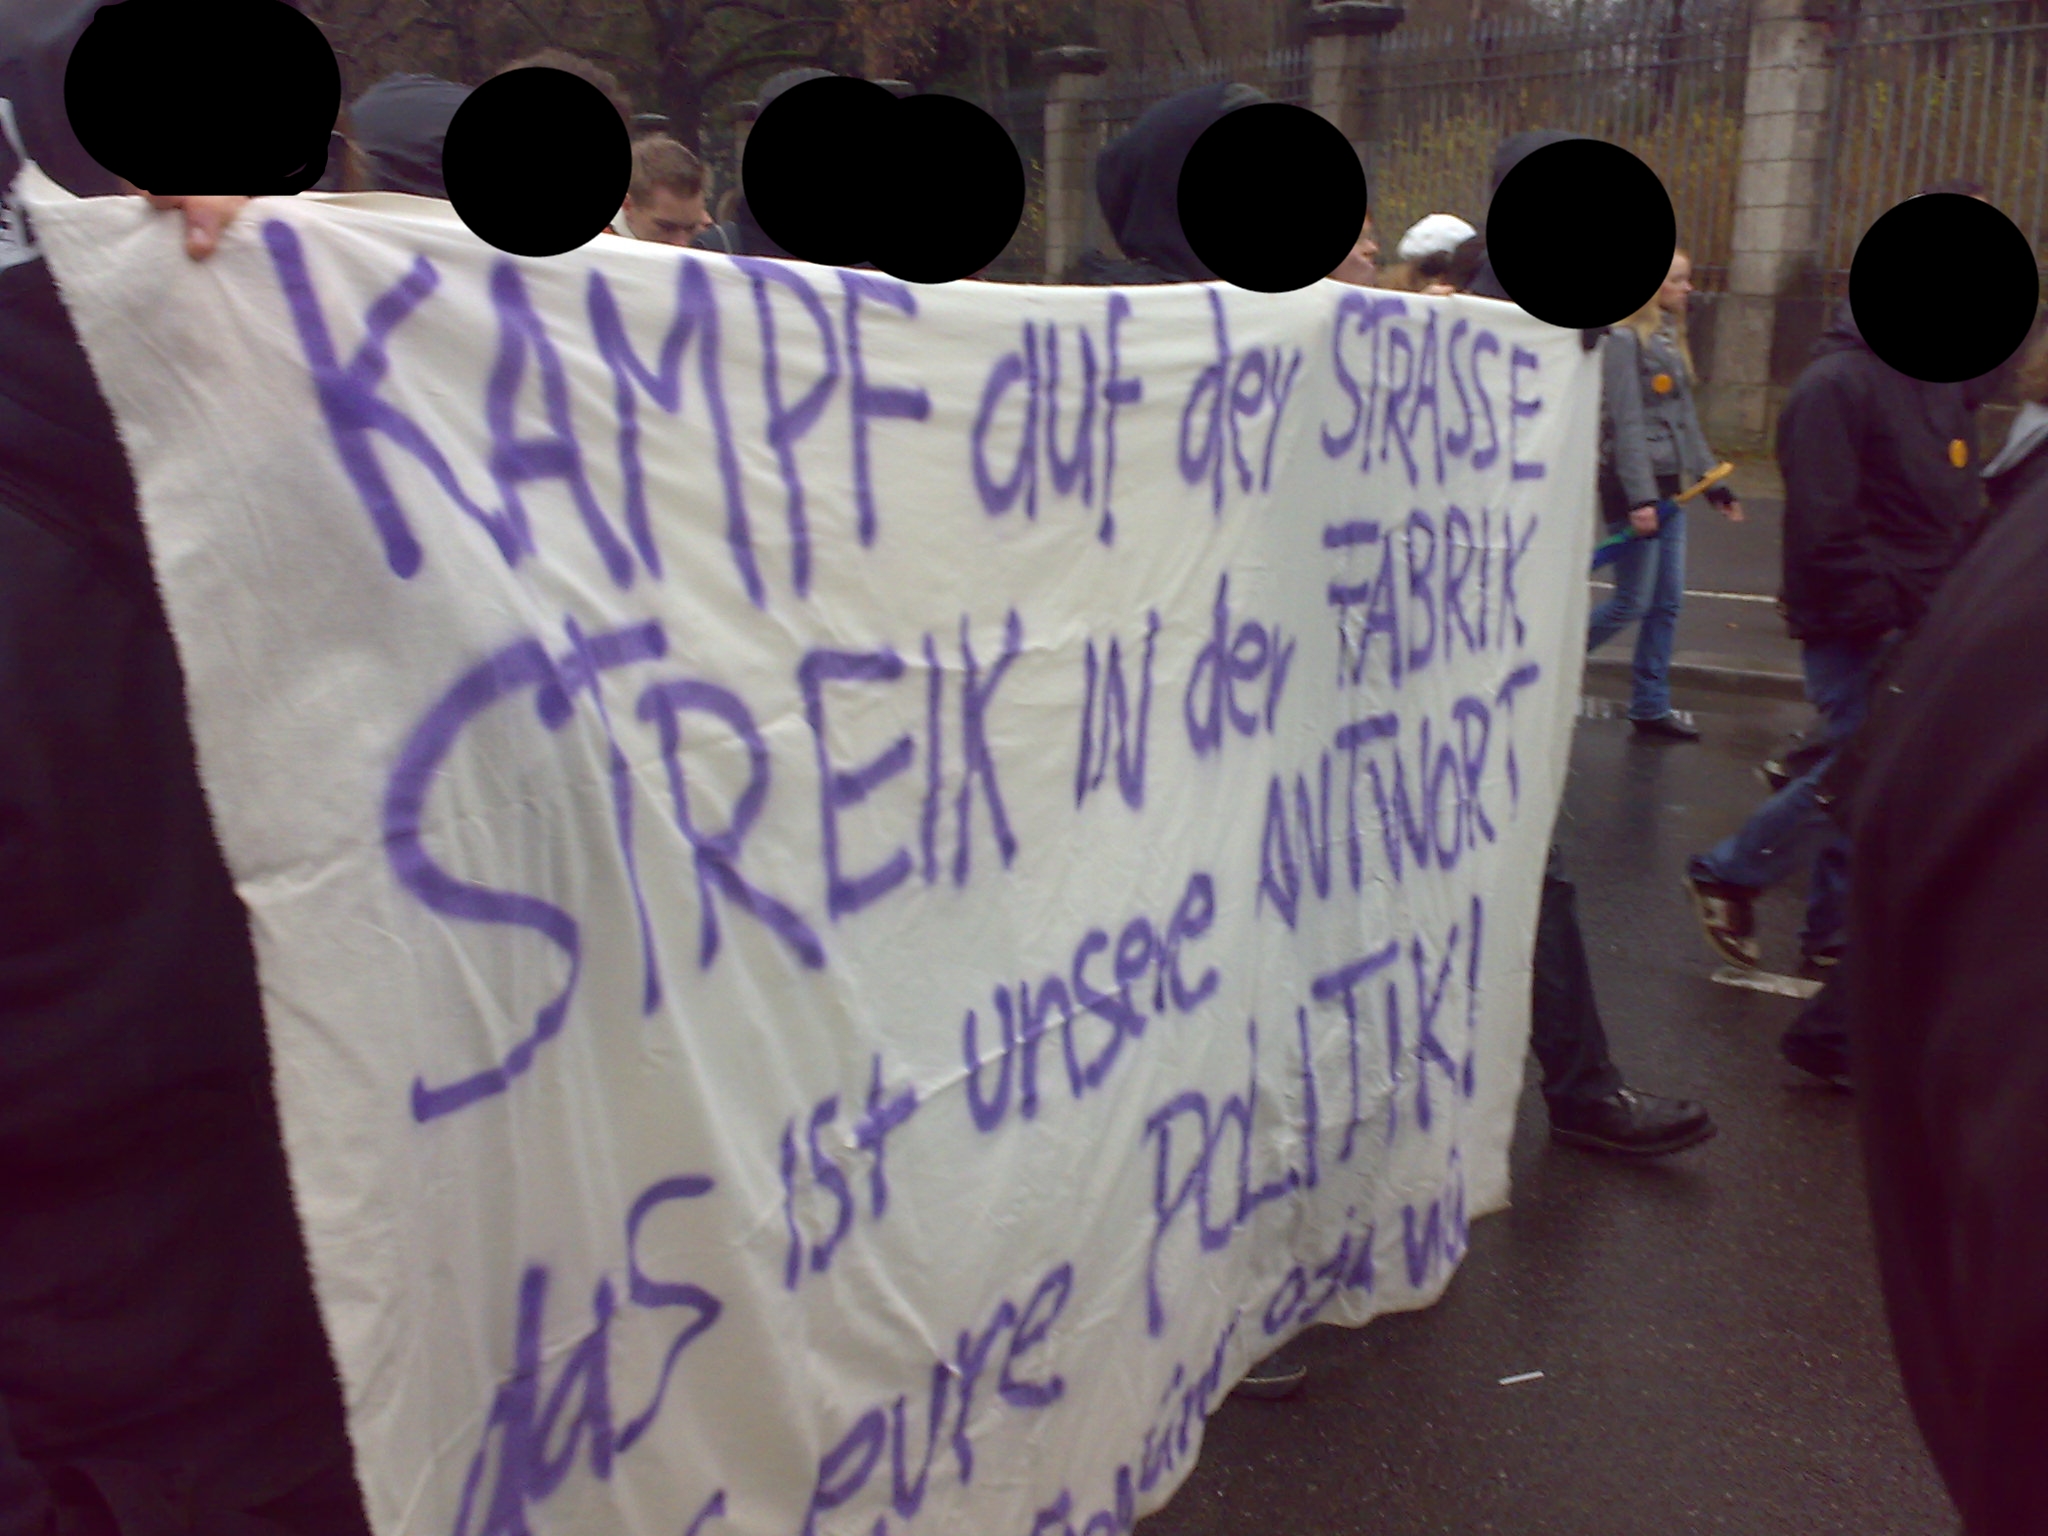 KAMPF auf der STRASSE
STREIK IN der FABRIK
das ist unsere ANTWORT
eure POLITIK!